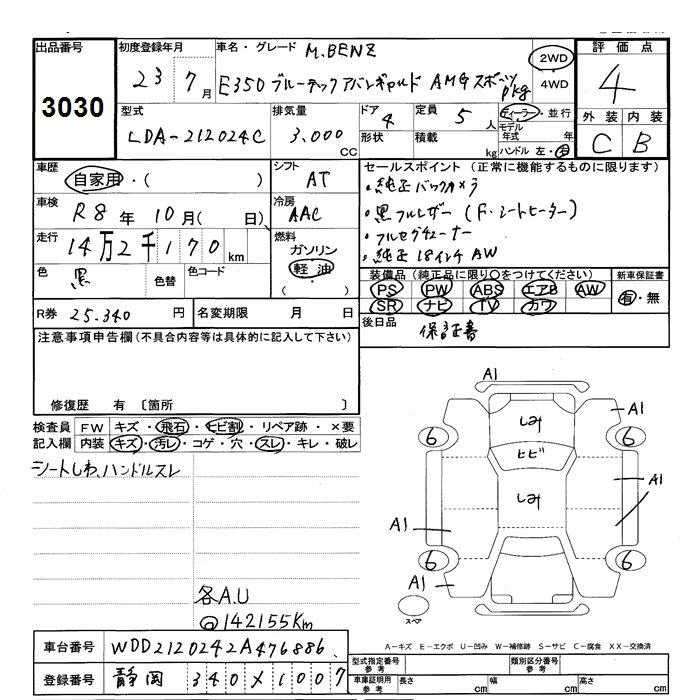 出品番号 初度登録年月 車名・グレード M.BENZ 評価点
3030 23 7月 E350 ブルーテック アバンギャルド AMGスポーツ pkg 2WD・4WD 4
型式 排気量 ドア 定員 ディーラー・並行 外装 内装
LDA-212024C 3.000 CC 4 5人 モデル年式 年 C B
形状 積載 kg ハンドル 左・右
車歴 シフト セールスポイント (正常に機能するものに限ります)
自家用・( ) AT ・純正バックカメラ
車検 冷房 ・黒フルレザー (F・シートヒーター)
R8年 10月( 日) AAC ・フルセグチューナー
走行 燃料 ・純正18インチAW
14万2千170km ガソリン
色 色替 色コード 軽油 装備品 (純正品に限り○をつけてください) 新車保証書
黒 ( ) PS PW ABS エアB AW 有・無
SR ナビ TV カワ
R券 25.340円 名変期限 月 日 後日品 保証書
注意事項申告欄 (不具合内容等は具体的に記入して下さい)
修復歴 有 〔箇所 〕
検査員記入欄 FW キズ・飛石・ヒビ割・リペア跡・×要
内装 キズ・汚レ・コゲ・穴・スレ・キレ・破レ
シートしわ、ハンドルスレ
各A.U
@142155Km
A1
しみ A1
6 6
ヒビ
しみ A1
A1
6 6
A1
スペア
A−キズ E−エクボ U−凹み W−補修跡 S−サビ C−腐食 XX−交換済
車台番号 WDD2120242A476886
型式指定番号 参考 類別区分番号 参考
登録番号 静岡 340×1007
車庫証明用 参考 長さ cm 幅 cm 高さ cm